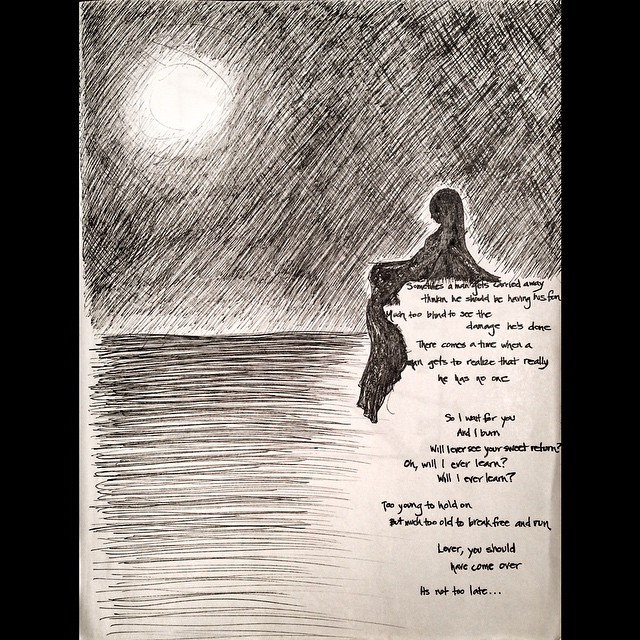 Sometimes a man gets carried away
thinkin he should be having his fun
Much too blind to see the
damage he's done
There comes a time when a
man gets to realize that really
he has no one
So I wait for you
And I burn
Will I ever see your sweet return?
Oh, will I ever learn?
Will I ever learn?
Too young to hold on
But much too old to break free and run
Lover, you should
have come over
Its not too late...